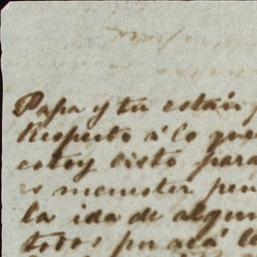 Papa y tu están
Respecto á lo que
estoy listo para
es menester pen
la ida de algun
todos por acá